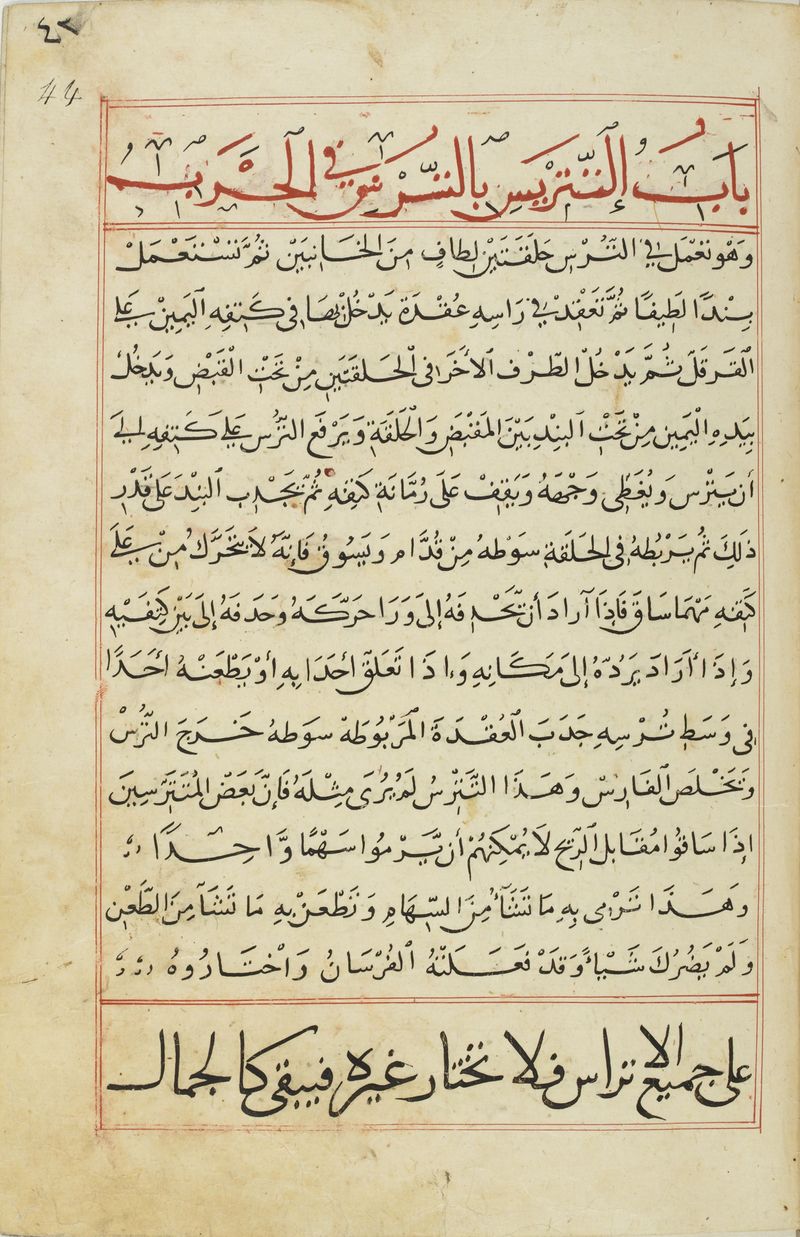 ٤٢
44
بَابُ التَّتْرِيسِ بِالتُّرْسِ فِي الْحَرْبِ
وَهُو تَعْمَل فِي التُّرْسِ حَلَقَتَيْنِ لِطافٍ مِنَ الْجَانِبَيْنِ ثُمَّ تَسْتَعْمَلْ
بِنْدًا لَطِيفًا ثُمَّ تَعْقِدْ فِي رَاسِهِ عُقْدَةً يَدْخُلْ بِهَا فِي كَتِفِهِ الْيَمِيْنِ عَلَى
الْقَرقَلَ ثُمَّ يَدْخُلْ الطَّرْف الْأَخَرَ فِي الْحَلَقَتَيْنِ مِنْ تَحْتِ الْقَبْضِ وَيَدخُلُ
بِيَدِهِ الْيَمِينِ مِنْ تَحْتِ الْبِنْدِ بَيْنَ الْمَقْبَضِ وَالْحَلَقَةِ وَيَرْفَع التُّرْس عَلَى كَتِفِهِ إِلَى
أَن يَتَرْس وَيُغَطِّي وَجْهَهُ وَيَقِفْ عَلَى رُمَّانَةِ كَتِفِهِ ثُمَّ يَجْذِب الْبِنْدَ عَلَى قَدْرِ
ذَلِكَ ثُمَّ يَرْبُطهُ فِي الْحَلَقَةِ سَوْطهُ مِنْ قُدَّام وَيَسُوقُ فَإِنَّهُ لَا يَتَحَرَّكُ مِنْ عَلَى
كَتِفِهِ مَهْمَا سَاقَ فَإِذَا أَرَادَ أَنْ يَحْدِفَهُ إِلَى وَرَا حَرَّكَهُ وَحَدَفَهُ إِلَى بَيْنِ كَتِفَيْهِ
وَإِذَا أَرَادَ يَرُدّهُ إِلَى مَكَانِهِ وَإِذَا تَعَلَّق أَحَدَا بِهِ أَوْ يَطْعَنْهُ أَحَدًا
فِي وَسَطِ تُرْسِهِ جَدَبَ الْعُقْدَةَ الْمَرْبُوطَةْ سَوَطهُ خَرَجَ التُّرْسْ
وَتَخْلُص الْفَارِسْ وَهَذَا التَّتْرِسُ لَمْ يُرَى مِثْلَهُ فَإِنَّ بَعْضَ الْمُتَتَرِّسِينَ
إِذَا سَاقُوا مُقَابِل الرِّيحِ لَا يُمْكِنُهُمْ أَن يَّرْمُوا سَهْمًا وَّاحِدًا
وَهَذَا تَرْمِي بِهِ مَا تَشَأْ مِنَ السِّهَامِ وَتَطْعَنْ بِهِ مَا تَشَأْ مِنَ الطَّعْنِ
وَلَمْ يَضُرُكَ شَيْأً وَقَدْ فَعَلَتْهُ الْفُرْسَانُ وَاخْتَارُوهُ
على جميع الاتراس فلا تختار غيره فيبقى كالجمال